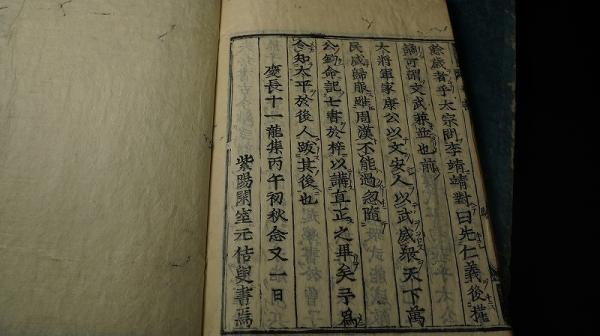 餘歲者乎太宗問李靖靖對曰先仁義後權
譎可謂文武兼並也前
大將軍家康公以文安人以武威敵天下萬
民咸歸服雖周漢不能過忽隨
公鈞命記七書於梓以講直正之畢矣予爲
令知太平於後人跋其後也
慶長十一龍集丙午初秋念又一日
紫陽閑室元佶叟書焉